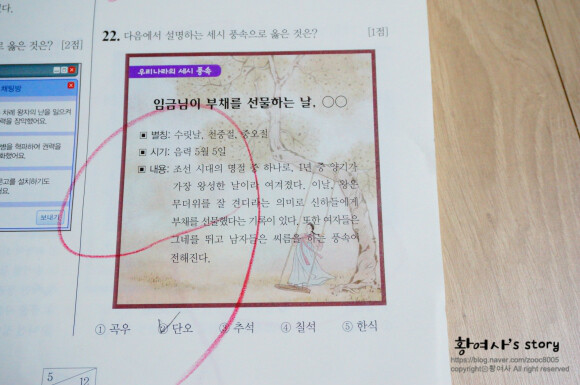 22. 다음에서 설명하는 세시 풍속으로 옳은 것은? [1점]
로 옳은 것은? [2점]
우리나라의 세시 풍속
임금님이 부채를 선물하는 날. ○○
▣ 별칭: 수릿날, 천중절, 중오절
▣ 시기: 음력 5월 5일
▣ 내용: 조선 시대의 명절 중 하나로, 1년 중 양기가
가장 왕성한 날이라 여겨졌다. 이날, 왕은
무더위를 잘 견디라는 의미로 신하들에게
부채를 선물했다는 기록이 있다. 또한 여자들은
그네를 뛰고 남자들은 씨름을 하는 풍속이
전해진다.
① 곡우 ② 단오 ③ 추석 ④ 칠석 ⑤ 한식
채팅방
차례 왕자의 난을 일으켜
력을 장악했어요.
병을 혁파하여 권력을
화했어요.
문고를 설치하기도
어요.
보내기
5
12
황여사's story
https://blog.naver.com/zooc8005
copyrightⓒ황여사 All right reserved